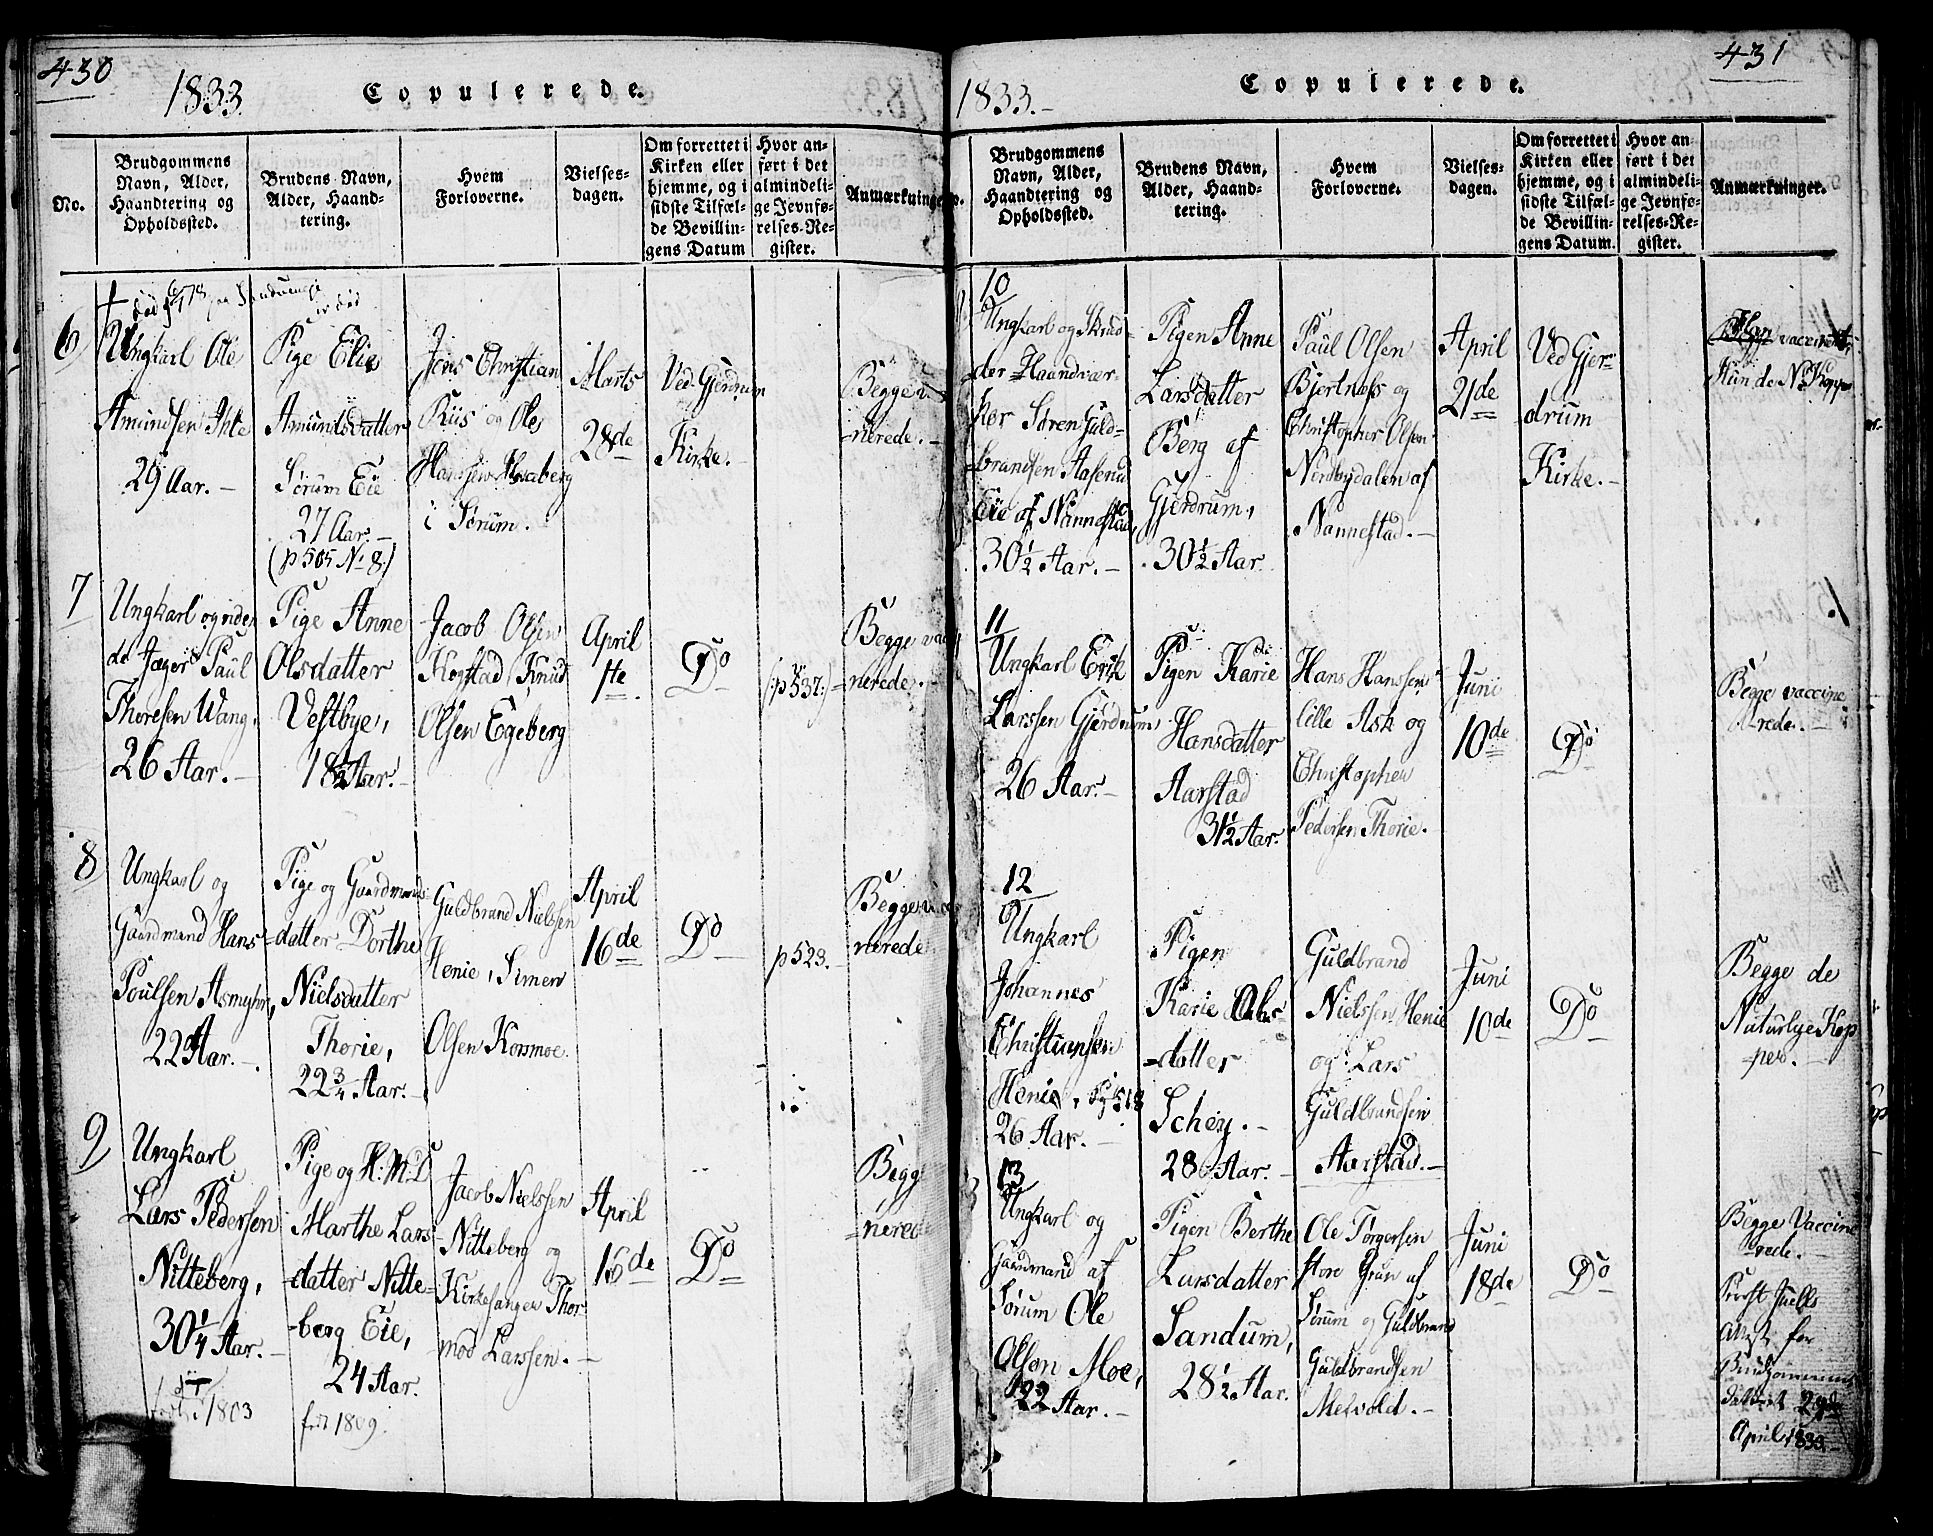 430
1833.
Copulerede.
No.
Brudgommens
Navn, Alder,
Haandtering og
Opholdssted.
Brudens Navn,
Alder, Haand-
tering.
Hvem
Forloverne.
Vielses-
dagen.
Om forrettet i
Kirken eller
hjemme, og i
sidste Tilfæl-
de Bevillin-
gens Datum
Hvor an-
ført i det
almindeli-
ge Jevnfø-
relses-Re-
gister.
Anmærkninger
6
Ungkarl Ole
Amundsen Ihle
29 Aar.-
Pige Elie
Amundsdatter
Sørum Eie
27 Aar.-
(p 505 No 8.)
Jens Christian
Kiis og Ole
Hanssen
i Sørum.
Marts
28de
Ved Gjerdrum
Kirke.-
Begge
nerede.-
7
Ungkarl og
de Jæger Paul
Thoresen Wang,
26 Aar.-
Pige Anne
Olsdatter
Vestbye,
18½ Aar.-
Jacob Olsen
Kogstad Knud
Olsen Egeberg
April
1te
Do
(:p 537:)
Begge
nerede.-
8
Ungkarl og
Gaardmand Hans
Poulsen Asmyhr,
22 Aar.-
Pige og Gaardmands
-datter Dorthe
Nielsdatter
Thorie,
22¾ Aar.-
Guldbrand Nielssen
Henie, Simen
Olsen Kosmoe.
April
16de
Do
p 523.
Begge
nerede.
9
Ungkarl
Lars Pedersen
Nitteberg,
30¼ Aar.-
1803
Pige og H.M.D
Marthe Lars
-datter Nitte=
-berg Eie,
24 Aar.
1809.
Jacob Nielssen
Nitteberg og
Kirkesanger Thor
mod Larssen.-
April
16de
Do
Begge
nerede
431
1833.-
Copulerede.
Brudgommens
Navn, Alder,
Haandtering og
Opholdssted.
Brudens Navn,
Alder, Haand-
tering.
Hvem
Forloverne.
Vielses-
dagen.
Om forrettet i
Kirken eller
hjemme, og i
sidste Tilfæl-
de Bevillin-
gens Datum.
Hvor an-
ført i det
almindeli-
ge Jevnfø-
relses-Re-
gister.
Anmærkninger.
10
Ungkarl og Skræd
der-Haandvær
ker Søren Guld-
brandsen Aaserud
Eie af Nannestad,
30½ Aar.-
Pigen Anne
Larsdatter
Berg af
Gjerdrum,
30½ Aar.
Paul Olsen
Bjertness og
Christopher Olsen
Nordbydalen af
Nannestad.-
April
21de
Ved Gjer-
drum
Kirke.-
vaccineret,
Hun de N. Kopper
11
Ungkarl Erik
Larssen Gjerdrum,
26 Aar.-
Pigen Karie
Hansdatter
Aarstad
31½ Aar.
Hans Hanssen
lille Ask og
Christopher
Pedersen Thorie.
Juni
10de
Do
Begge vaccine
rede.-
12
Ungkarl
Johannes
Christiansen
Henie, 518
26 Aar.-
Pigen
Karie Ols-
-datter
Schey.-
28 Aar.-
Guldbrand
Nielssen Henie
og Lars
Guldbrandsen
Aarstad.-
Juni
10de
Do
Begge de
Naturlige Kop
-per.-
13
Ungkarl og
Gaardmand af
Sørum Ole
Olsen Moe,
22 Aar.-
Pigen Berthe
Larsdatter
Sandum,
28½ Aar.
Ole Torgersen
store af
Sørum og Guldbrand
Guldbrandsen
Melvold.-
Juni
18de
Do
Begge Vaccine
rede.-
Juells
Attest for
Brudgommen
dateret 29de
April 1833.-